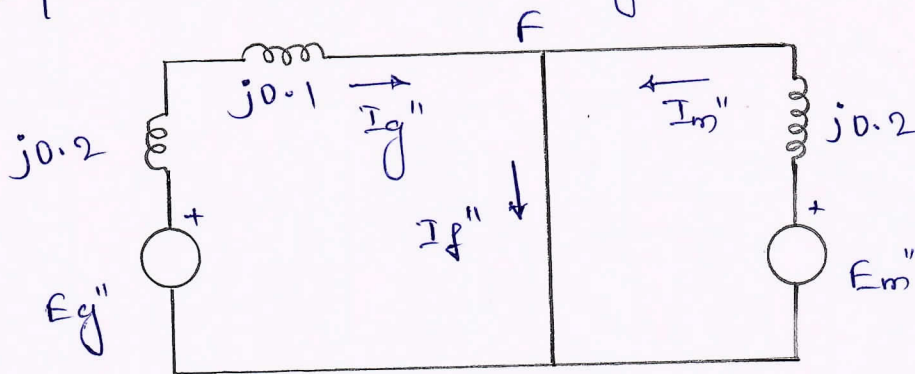 F
j0.1
Ig"
Im"
j0.2
j0.2
+
+
If"
Eg"
Em"